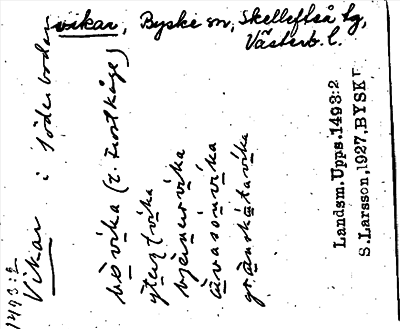 vikar, Byske sn, Skellefteå tg,
Västerb. l.
1493:2
Vikar i Söderboden
bòvika (v. Frostkåge)
yterstvika
bjæ̀nurvika
àvasonvika
grànskàtavika
Landsm.Upps.1493:2
S.Larsson,1927,BYSK